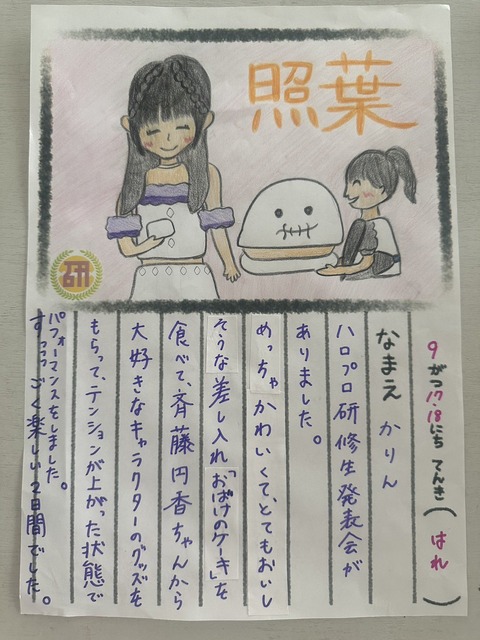 照葉
研
9がつ17.18にち てんき(はれ)
なまえ かりん
ハロプロ研修生発表会が
ありました。
めっちゃかわいくて、とてもおいし
そうな差し入れ「おばけのケーキ」を
食べて、斉藤円香ちゃんから
大好きなキャラクターのグッズを
もらって、テンションが上がった状態で
パフォーマンスをしました。
すっっっごく楽しい2日間でした。